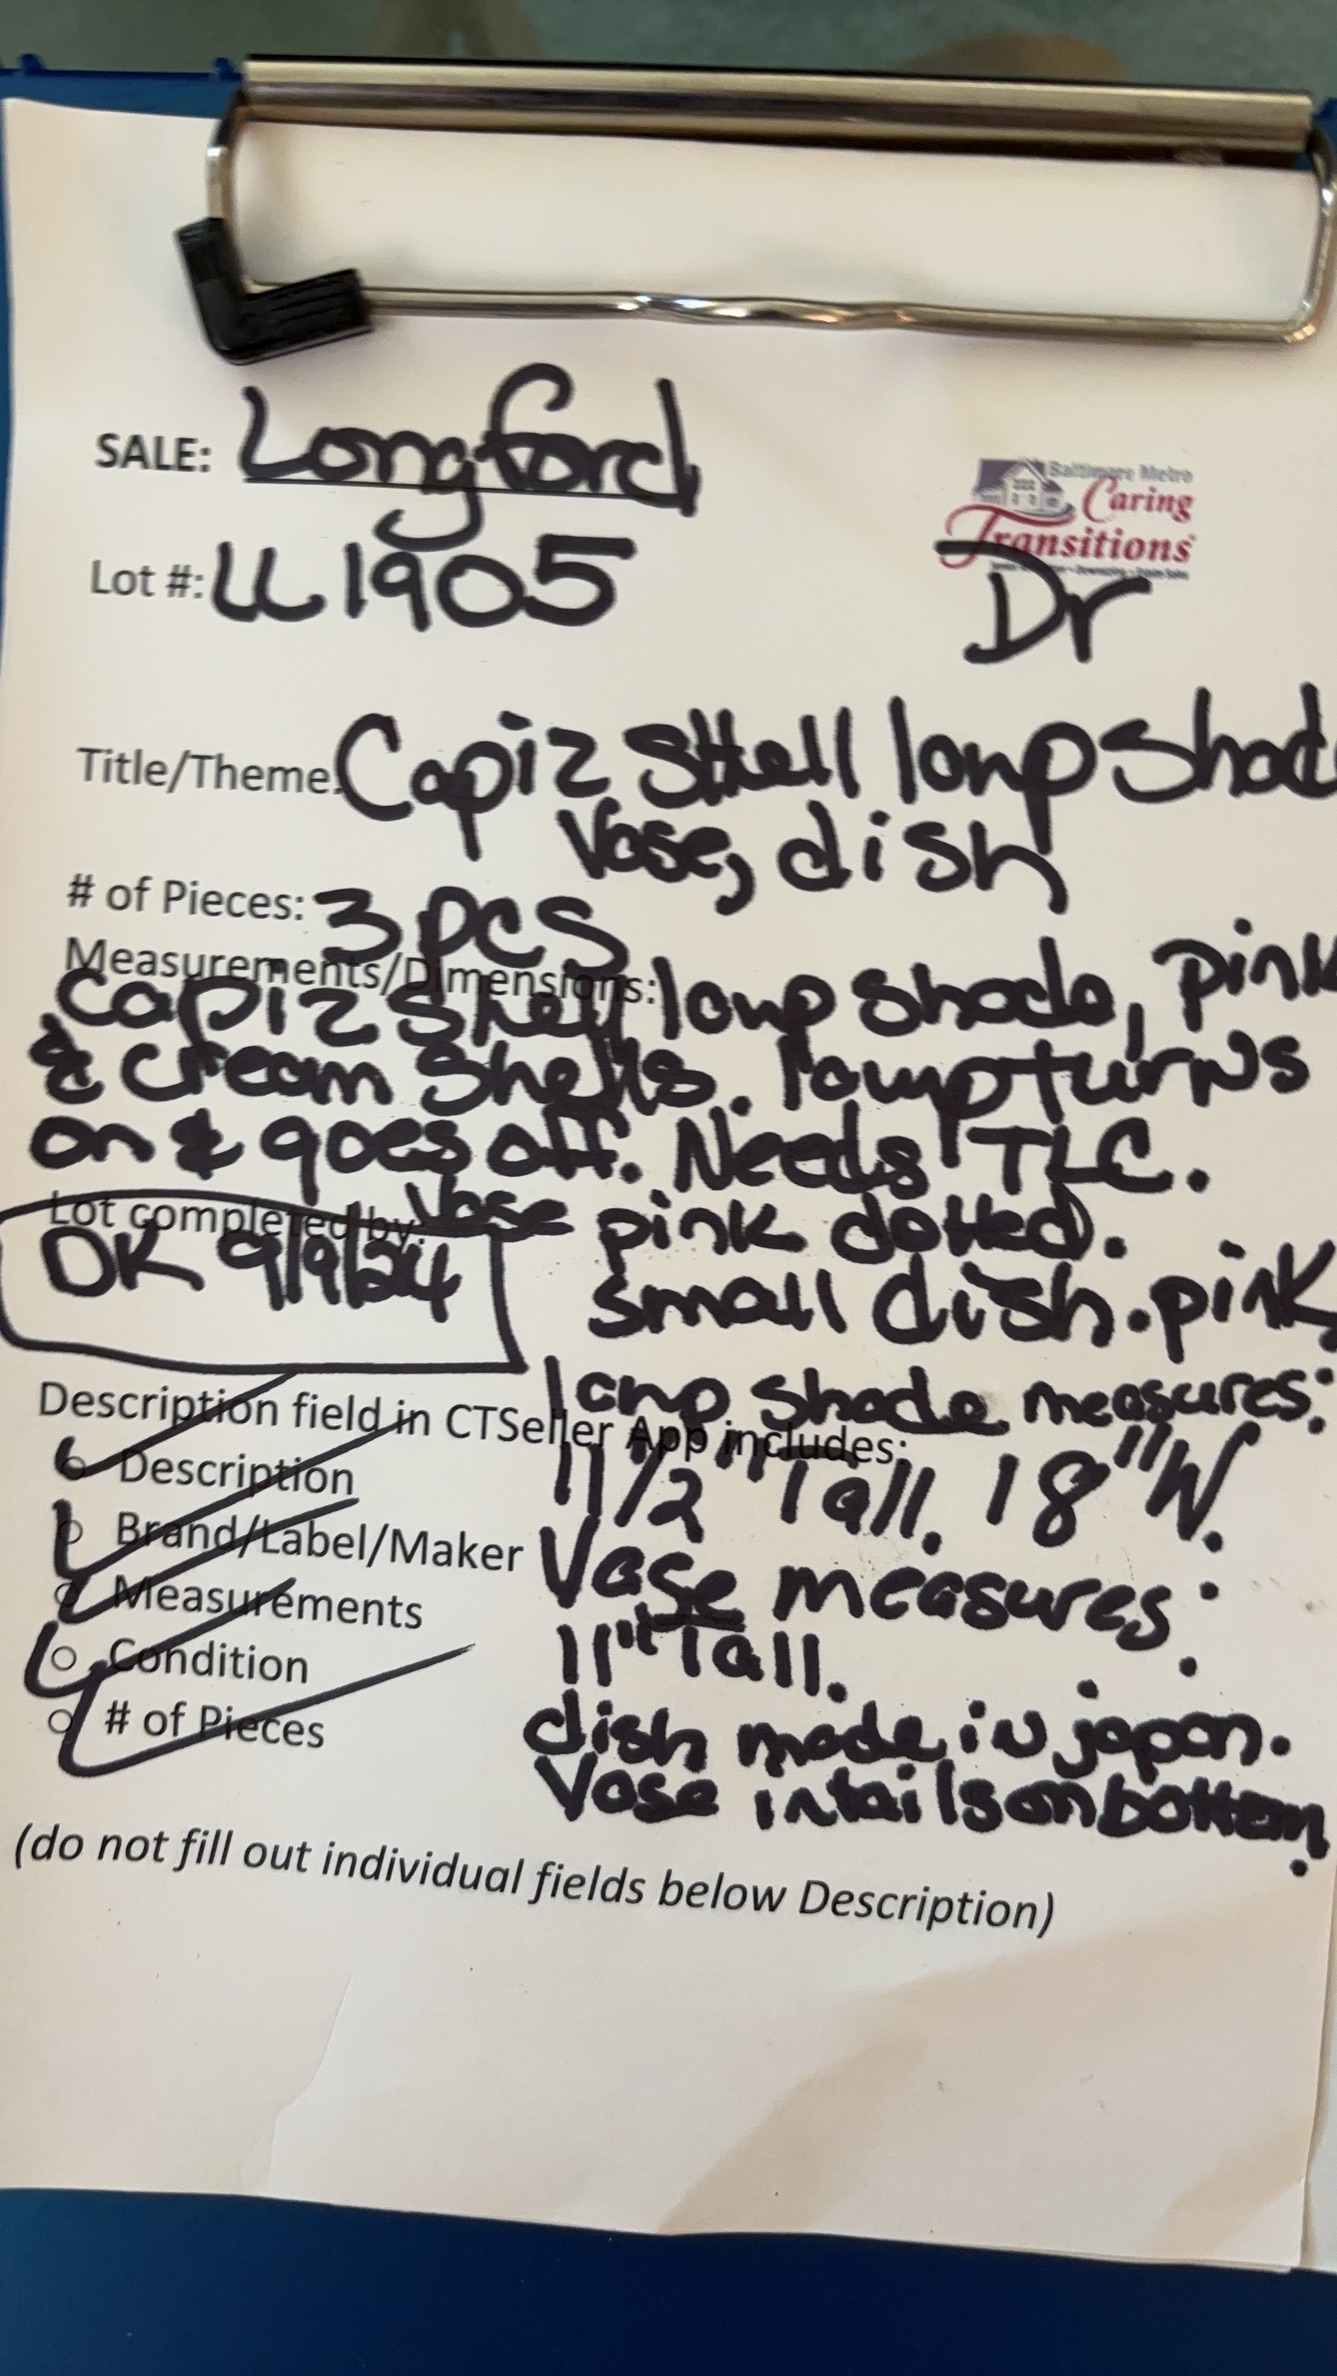 SALE: Longford
Baltimore Metro
Caring
Transitions
Lot #: LL1905
Dr
Title/Theme: Capiz Shell lampshad
Vase, dish
# of Pieces: 3 pcs
Measurements/Dimensions: lamp shade, pink
capiz shell
& cream shells. lamp turns
on & goes off. Needs TLC.
Lot completed by: Vase pink dotted.
DK 9/9/24 small dish. pink
lamp shade measures:
Description field in CTSeller App includes:
Description 11 1/2" Tall. 18" W.
Brand/Label/Maker Vase measures:
Measurements
11" Tall.
Condition
# of Pieces dish made in japan.
Vase intails on bottom.
(do not fill out individual fields below Description)